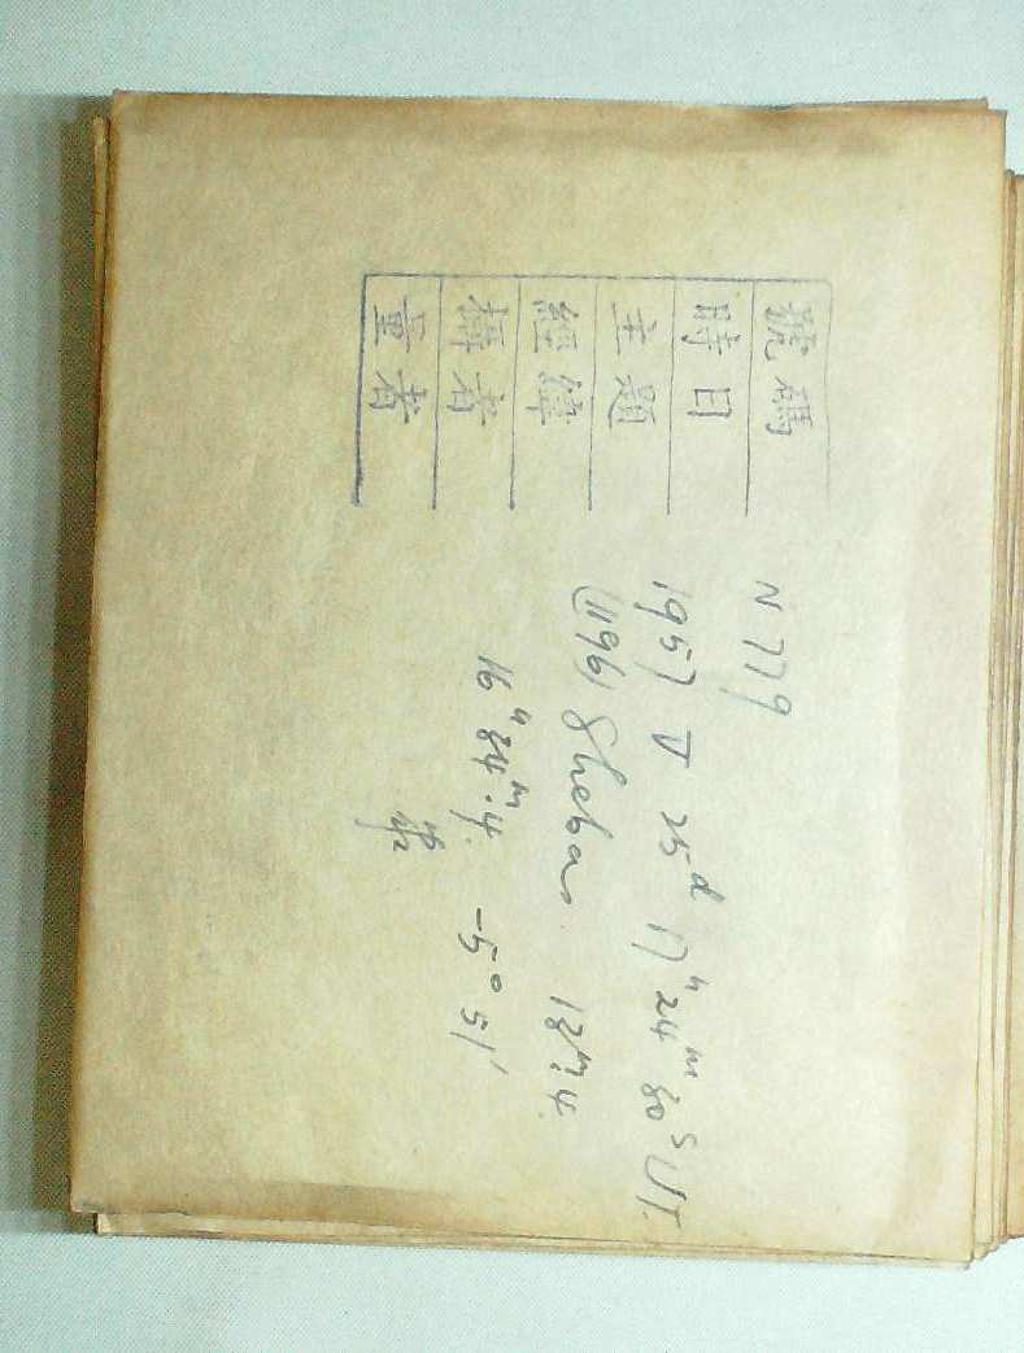 號碼 N 779
時日 1957 V 25d 17h 24m 30s UT.
主題 (1196) Sheba 13m.4
經緯 16h 34m.4 -5° 51′
攝者
量者